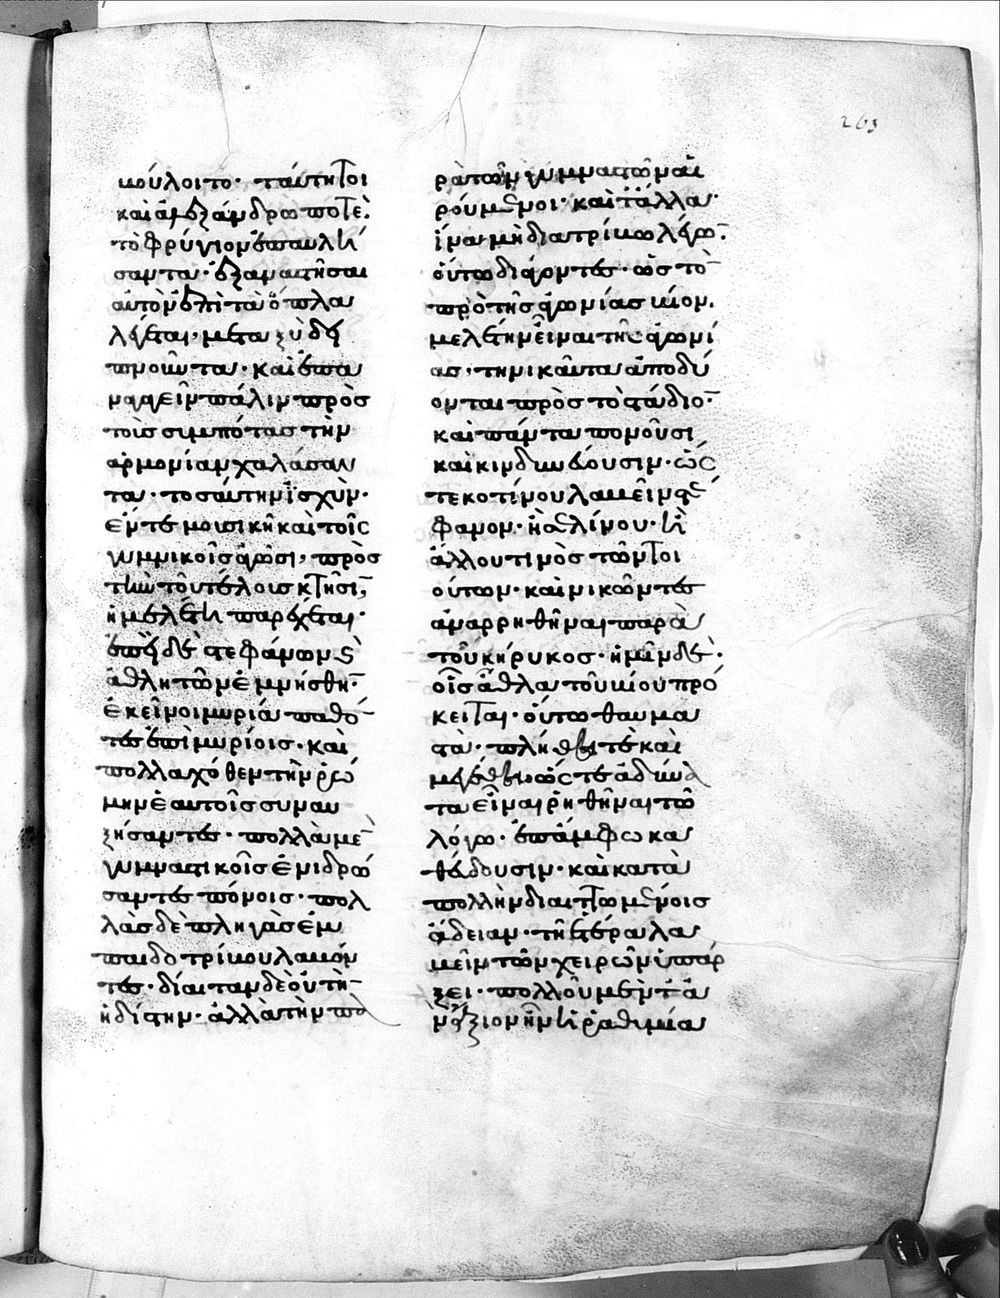 βούλοιτο· ταύτη τοι
καὶ ἀλεξάνδρω ποτὲ.
τὸ φρύγιον ἐπαυλή
σαντα· ἐξαναστῆσαι
αὐτὸν ἐπὶ τὰ ὅπλα
λέγεται· μεταξὺ δει
πνοῦντα· καὶ ἐπα
ναγαγεῖν πάλιν πρὸς
τοὺς συμπότας τὴν
ἁρμονίαν χαλάσαν
τα· τοσαύτην ἰσχὺν·
ἔν τε μουσικῆ καὶ τοῖς
γυμνικοῖς ἀγῶσι, πρὸς
τὴν τοῦ τέλους κτῆσιν,
ἡ μελέτη παρέχεται·
ἐπεὶ δὲ στεφάνων καὶ
ἀθλητῶν ἐμνήσθην·
ἐκεῖνοι μυρία παθό
τες ἐπὶ μυρίοις· καὶ
πολλαχόθεν τὴν ῥώ
μην ἑαυτοῖς συναυ
ξήσαντες· πολλὰ μὲ
γυμναστικοῖς ἐνιδρώ
σαντες πόνοις· πολ
λὰς δὲ πληγὰς ἐν
παιδοτρίβου λαβόν
τες· δίαιταν δὲ οὐ τὴ
ἡδίστην· ἀλλὰ τὴν πα
ρὰ τῶν γυμναστῶν αἱ
ρούμενοι· καὶ τἄλλα·
ἵνα μὴ διατρίβω λέγων·
οὕτω διάγοντες· ὡς τὸ
πρὸ τῆς ἀγωνίας βίον.
μελέτην εἶναι τῆς ἀγωνί
ας, τηνικαῦτα ἀποδύ
ονται πρὸς τὸ στάδιον·
καὶ πάντα πονοῦσι
καὶ κινδυνεύουσιν· ὥς
τε κοτίνου λαβεῖν στέ
φανον· ἢ σελίνου· ἢ
ἄλλου τινὸς τῶν τοι
ούτων· καὶ νικῶντες
ἀναρρηθῆναι παρὰ
τοῦ κήρυκος· ἡμῖν δὲ·
οἷς ἆθλα τοῦ βίου πρό
κειται· οὕτω θαυμα
στὰ· πλήθει τὲ καὶ
μεγέθει ὥς τε ἀδύνα
τα εἶναι ῥηθῆναι τῶ
λόγω· ἐπάμφω κα
θεύδουσιν· καὶ κατὰ
πολλὴν διαιτωμένοις
ἄδειαν· τῆ ἑτέρα λα
βεῖν τῶν χειρῶν ὑπάρ
ξει· πολλοῦ μὲν τἂ
ν ἄξιον ἦν ἡ ῥαθυμία
263